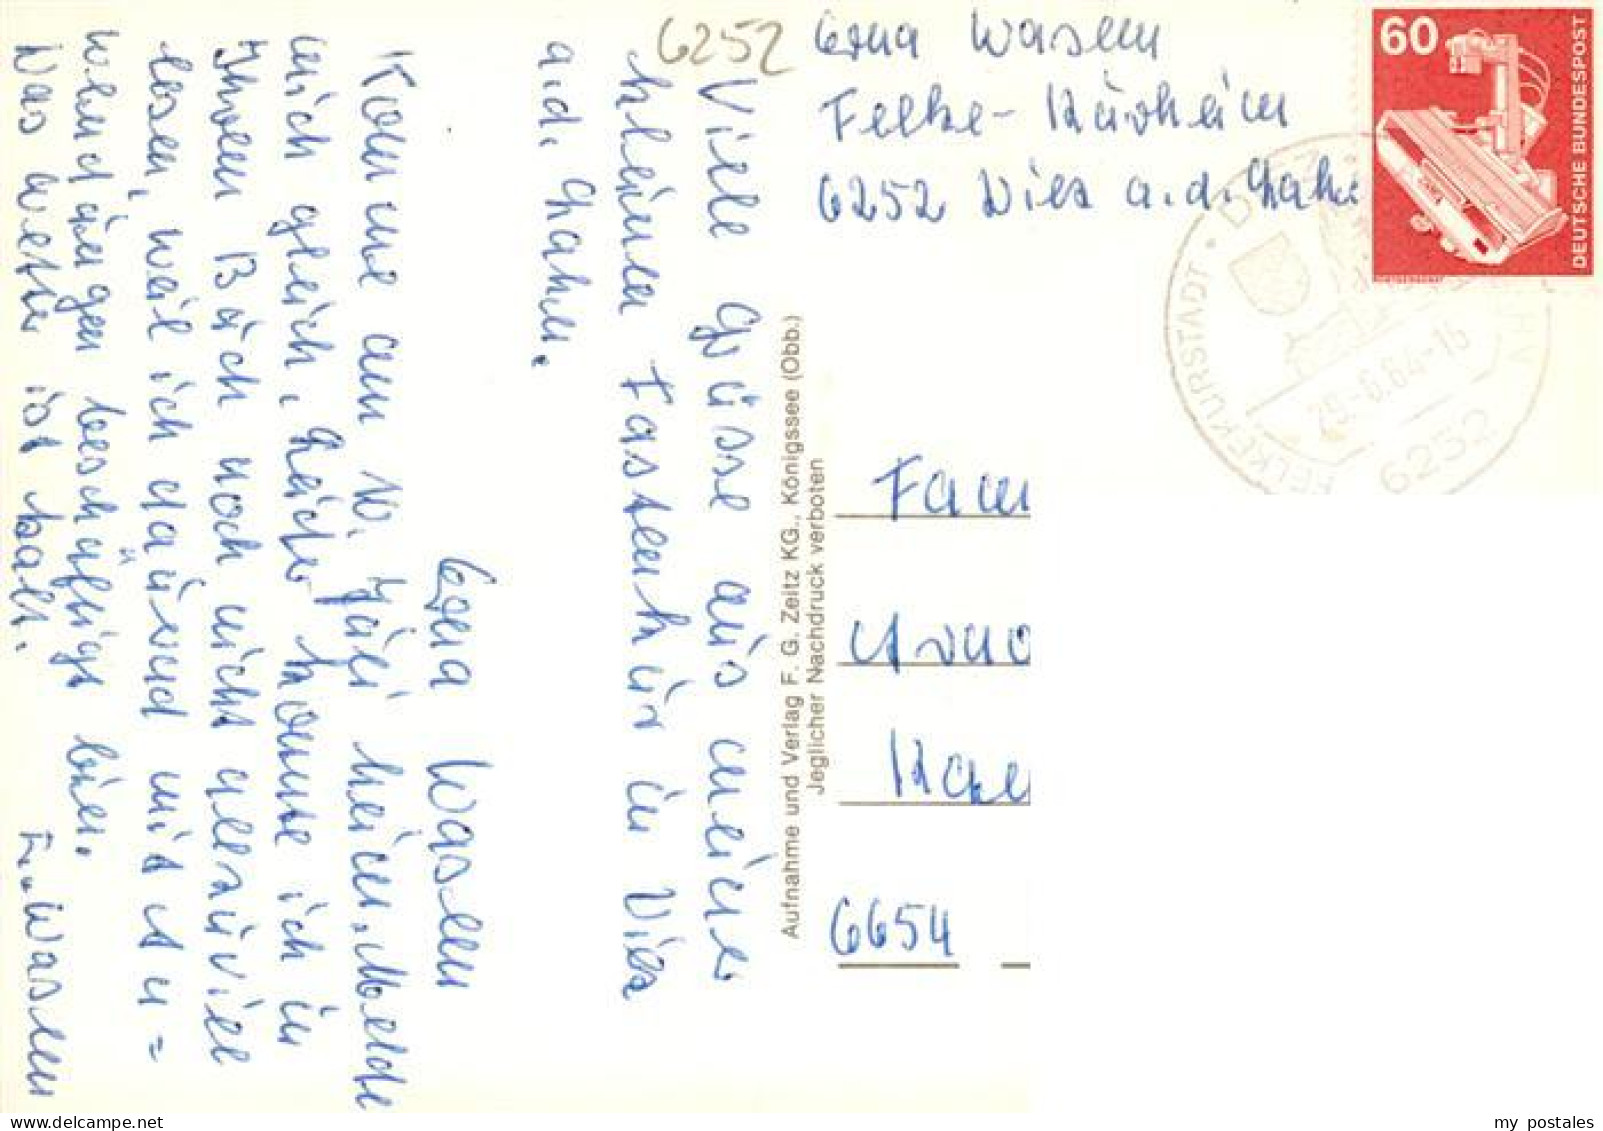 6252
Erna Wasem
Felke-Kurheim
6252 Diez a.d. Lahn
60
DEUTSCHE BUNDESPOST
FELKEKURSTADT · DIEZ
29.-6.84-16
6252
Viele Grüsse aus meiner
kleinen Fastenkur in Diez
a.d. Lahn.
Erna Wasem
Komme am 10. Juli heim. Melde
mich gleich. Leider konnte ich in
Ihrem Buch noch nicht allzuviel
lesen, weil ich dauernd mit An=
wendungen beschäftigt bin.
Das Wetter ist kalt. E. Wasem
Aufnahme und Verlag F. G. Zeitz KG., Königssee (Obb.)
Jeglicher Nachdruck verboten
Fam
6654
my postales